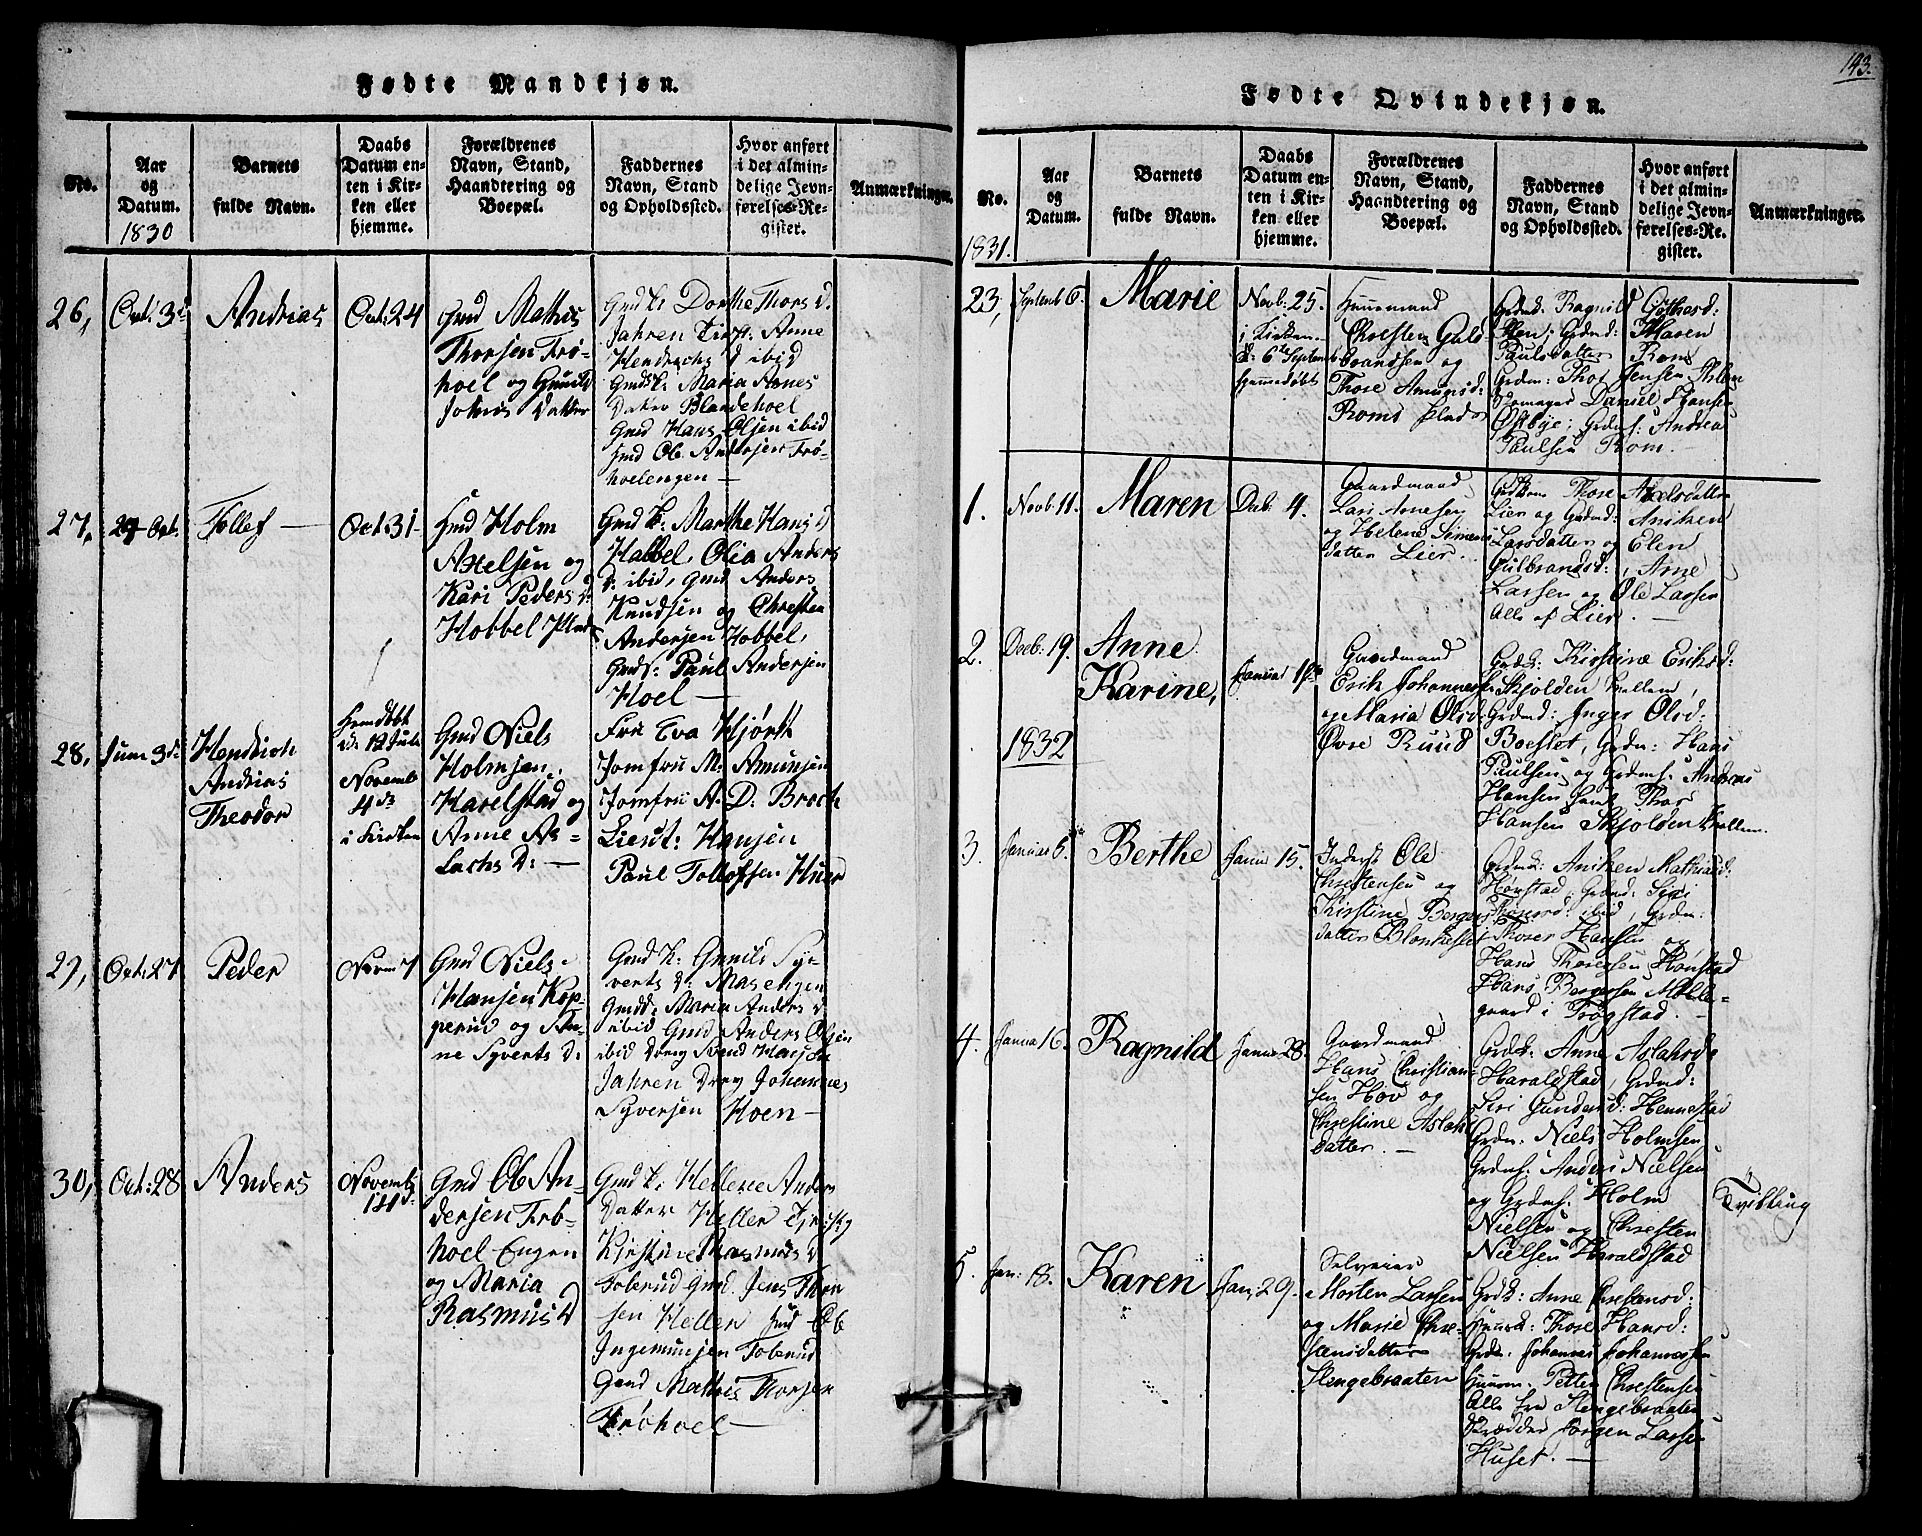 Fødte Mandkjøn.
No.
Aar
og
Datum.
1830
Barnets
fulde Navn.
Daabs
Datum en-
ten i Kir-
ken eller
hjemme.
Forældrenes
Navn, Stand,
Haandtering og
Boepæl.
Faddernes
Navn, Stand
og Opholdssted.
Hvor anført
i det almin-
delige Jevn-
førelses-Re-
gister.
Anmærkninger.
26,
Oct: 3d
Andrias
Oct: 24
Gmd Mathis
Thorsen Frø-
hoel og Gunild
Johnis Datter
Gmd k: Dorthe Thors d.
Jahren Anne
Hendrichs d ibid
Gmdsk: Maria Arnes
Datter Blandehoel
Gmd Hans Olsen ibid
Hmd Ole Andersen Frø-
hoelengen —
27,
Oct.
Tollef —
Oct: 31
Hmd Holm
Axelsen og
Kari Peders d:
Hobbel
Gmd k: Marthe Hans d
Habbel, Olia Anders
d: ibid, Gmd Anders
Knudsen og Chresten
Andersen Hobbel,
Gmds: Paul Andersen
Hoel —
28,
Juni 3d:
Hendrich
Andrias
Theodor
Hemdøbt
d: 12 Juli
Novemb
4de
i Kirken
Gmd Niels
Holmsen,
Harelstad og
Anne As-
lachs D: —
Fru Eva Hjorth
Jomfru M. Amunsen
Jomfru A. D. Broch
Lieut: Hansen
Paul Tollofsen Huer
29,
Oct: 27
Peder
Novm 7
Gmd Niels
Hansen Kop-
perud og An-
ne Syverts d:
Gmd k: Gunild Sy-
verts d: Masengen
Gmdd: Maria Anders d
ibid Gmd Anders Olsen
ibid Dreng Svend Hansen
Jahren Dreng Johannes
Syversen Hoen —
30,
Oct: 28
Anders
Novemb
14d:
Gmd Ole An-
dersen Frø-
hoel-Engen
og Maria
Rasmus D
Gmd k: Hellene Anders
Datter Heller
Kirstine Rasmus d
Foberud Gmd. Jens Thor
sen Heller Hmd Ole
Ingemunsen Foberud
Gmd Mathis Thorsen
Frøhoel —
143.
Fødte Qvindekjøn.
No.
Aar
og
Datum.
1831.
Barnets
fulde Navn.
Daabs
Datum en-
ten i Kir-
ken eller
hjemme.
Forældrenes
Navn, Stand,
Haandtering og
Boepæl.
Faddernes
Navn, Stand
og Opholdssted.
Hvor anført
i det almin-
delige Jevn-
førelses-Re-
gister.
Anmærkninger.
23,
Septemb 6.
Marie
Novb: 25.
i Kirken
d: 6te Septemb
hjemmedøbt
Huusmand
Chresten Guld-
brandsen og
Thore Amunsd:
Roms Plads
Grdmk: Ragnild Gothersd:
Hen; Grdmd: Maren
Paulsdatter Rom
Grdm: Thor Jensen
Daniel Hansen
Østbye; Grdms: Andrea
Paulsen Rom. —
1.
Novb: 11.
Maren
Decb: 4.
Gaardmand
Lars Arnesen
og Helene Simens
datter Lier.
Grdkone Thore Axelsdatter
Lier og Grdmd: Aniken
Larsdatter og Elen
Gulbrandsd:, Arne
Larsen og Ole Larsen
Alle af Lier. —
2.
Decb: 19.
1832
Anne
Karine,
Januar
Gaardmand
Erik Johannes
og Maria Olsd:
Øvre Ruud
Grdk: Kirstine Eriksd:
Skjolden Hallem,
Grdmd: Inger Olsd:
Boeslet, Grdm: Hans
Paulsen og Grdms: Andreas
Hansen samt Thor
Hansen Skjolden Hallem.
3.
Januar 6.
Berthe
Januar 15.
Inderst Ole
Chrestensen og
Kirstine Berger
datter
Grdmk: Aniken Mathiasd:
Honstad, Grdmd: Siri
ibid, Grdm:
Thorer Hansen og
Hans Thoresen Honstad
Hans Bergersen Mølle-
gaard i Trøgstad. —
4.
Januar 16.
Ragnild
Januar 28.
Gaardmand
Hans Christian-
sen Hov og
Chrestine Aslaks
datter. —
Grdk: Anne Aslaksd:
Haraldstad, Grdmd:
Siri Gundersd: Hennestad
Grdm: Niels Holmsen
Grdms: Anders Nielsen
og Grdms: Holm
Nielsen og Chresten
Nielsen Haraldstad
Tvilling
5.
Jan: 18.
Karen
Jan: 29.
Selveier
Morten Larsen
og Marie Chre-
stensdatter
Hengebraaten
Grdk: Anne Chrestensd:
Huusmk: Thore Hansd:
Grdm: Johannes Johannessen
Huusm: Petter Chrestensen
Alle fra Hengebraaten
Skrædder Jørgen Larsen
Huset. —